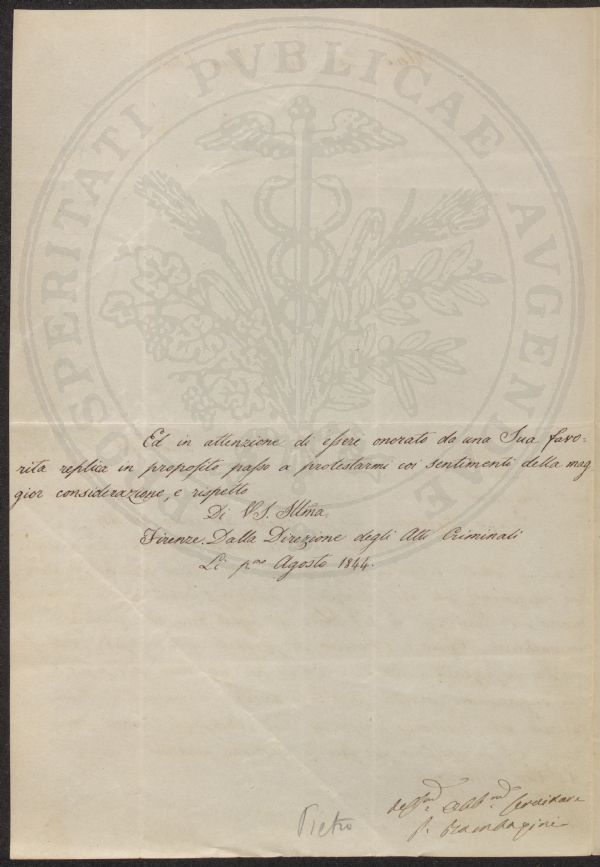 PROSPERITATI PVBLICAE AVGENDAE
Ed in attenzione di essere onorato da una Sua favo-
rita replica in proposito passo a protestarmi coi sentimenti della mag
gior considerazione, e rispetto
Di V.S. Illma.
Firenze. Dalla Direzione degli Atti Criminali
Li pmo Agosto 1844.
Pietro